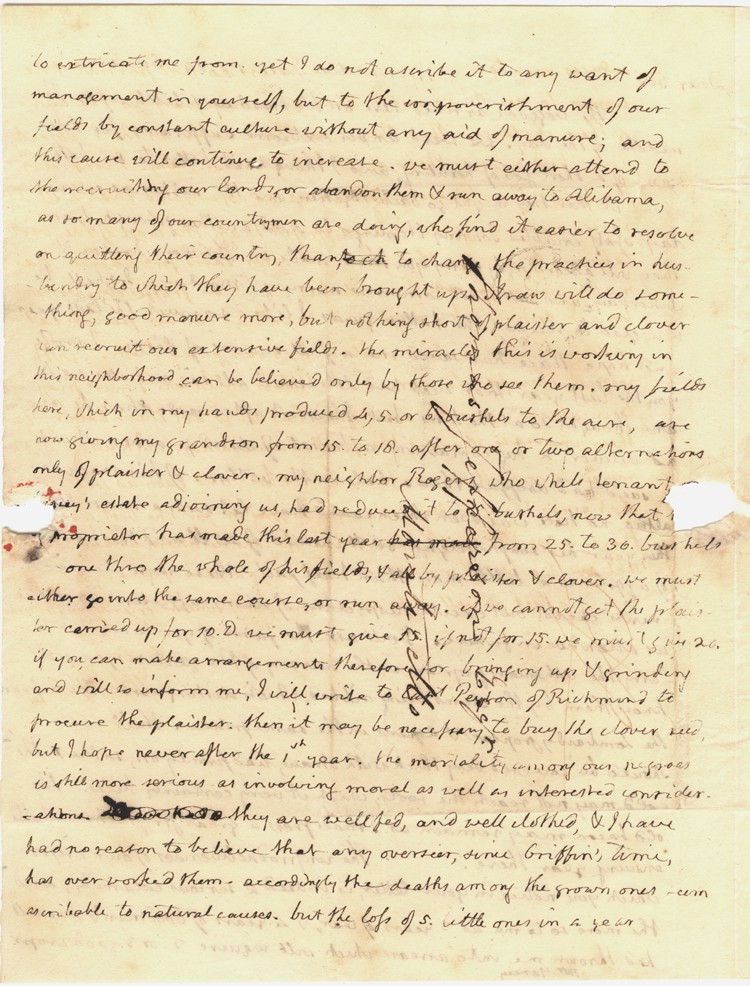 to extricate me from. yet I do not ascribe it to any want of
management in yourself, but to the impoverishment of our
fields by constant culture without any aid of manure; and
this cause will continue to increase. we must either attend to
the recruiting our lands, or abandon them & run away to Alibama,
as so many of our countrymen are doing, who find it easier to resolve
on quitting their country, than to change the practices in hus-
bandry to which they have been brought up. straw will do some-
thing, good manure more, but nothing short of plaister and clover
can recruit our extensive fields. the miracles this is working in
this neighborhood can be believed only by those who see them. my fields
here, which in my hands produced 4, 5. or 6. bushels to the acre, are
now giving my grandson from 15. to 18. after one or two alternations
only of plaister & clover. my neighbor Rogers who while tenant
estate adjoining us, had reduced it to bushels, now that
proprietor has made this last year from 25. to 30. bushels
one thro' the whole of his fields, & all by plaister & clover. we must
either go into the same course, or run away. if we cannot get the plais-
ter carried up for 10. D. we must give 15. if not for 15. we must give 20.
if you can make arrangements therefore for bringing up & grinding
and will so inform me, I will write to Capt Peyton of Richmond to
procure the plaister. then it may be necessary to buy the clover seed,
but I hope never after the 1st year. the mortality among our negroes
is still more serious as involving moral as well as interested consider-
-ations. they are well fed, and well clothed, & I have
had no reason to believe that any overseer, since Griffin's time,
has over worked them. accordingly the deaths among the grown ones seem
ascribable to natural causes. but the loss of 5. little ones in a year